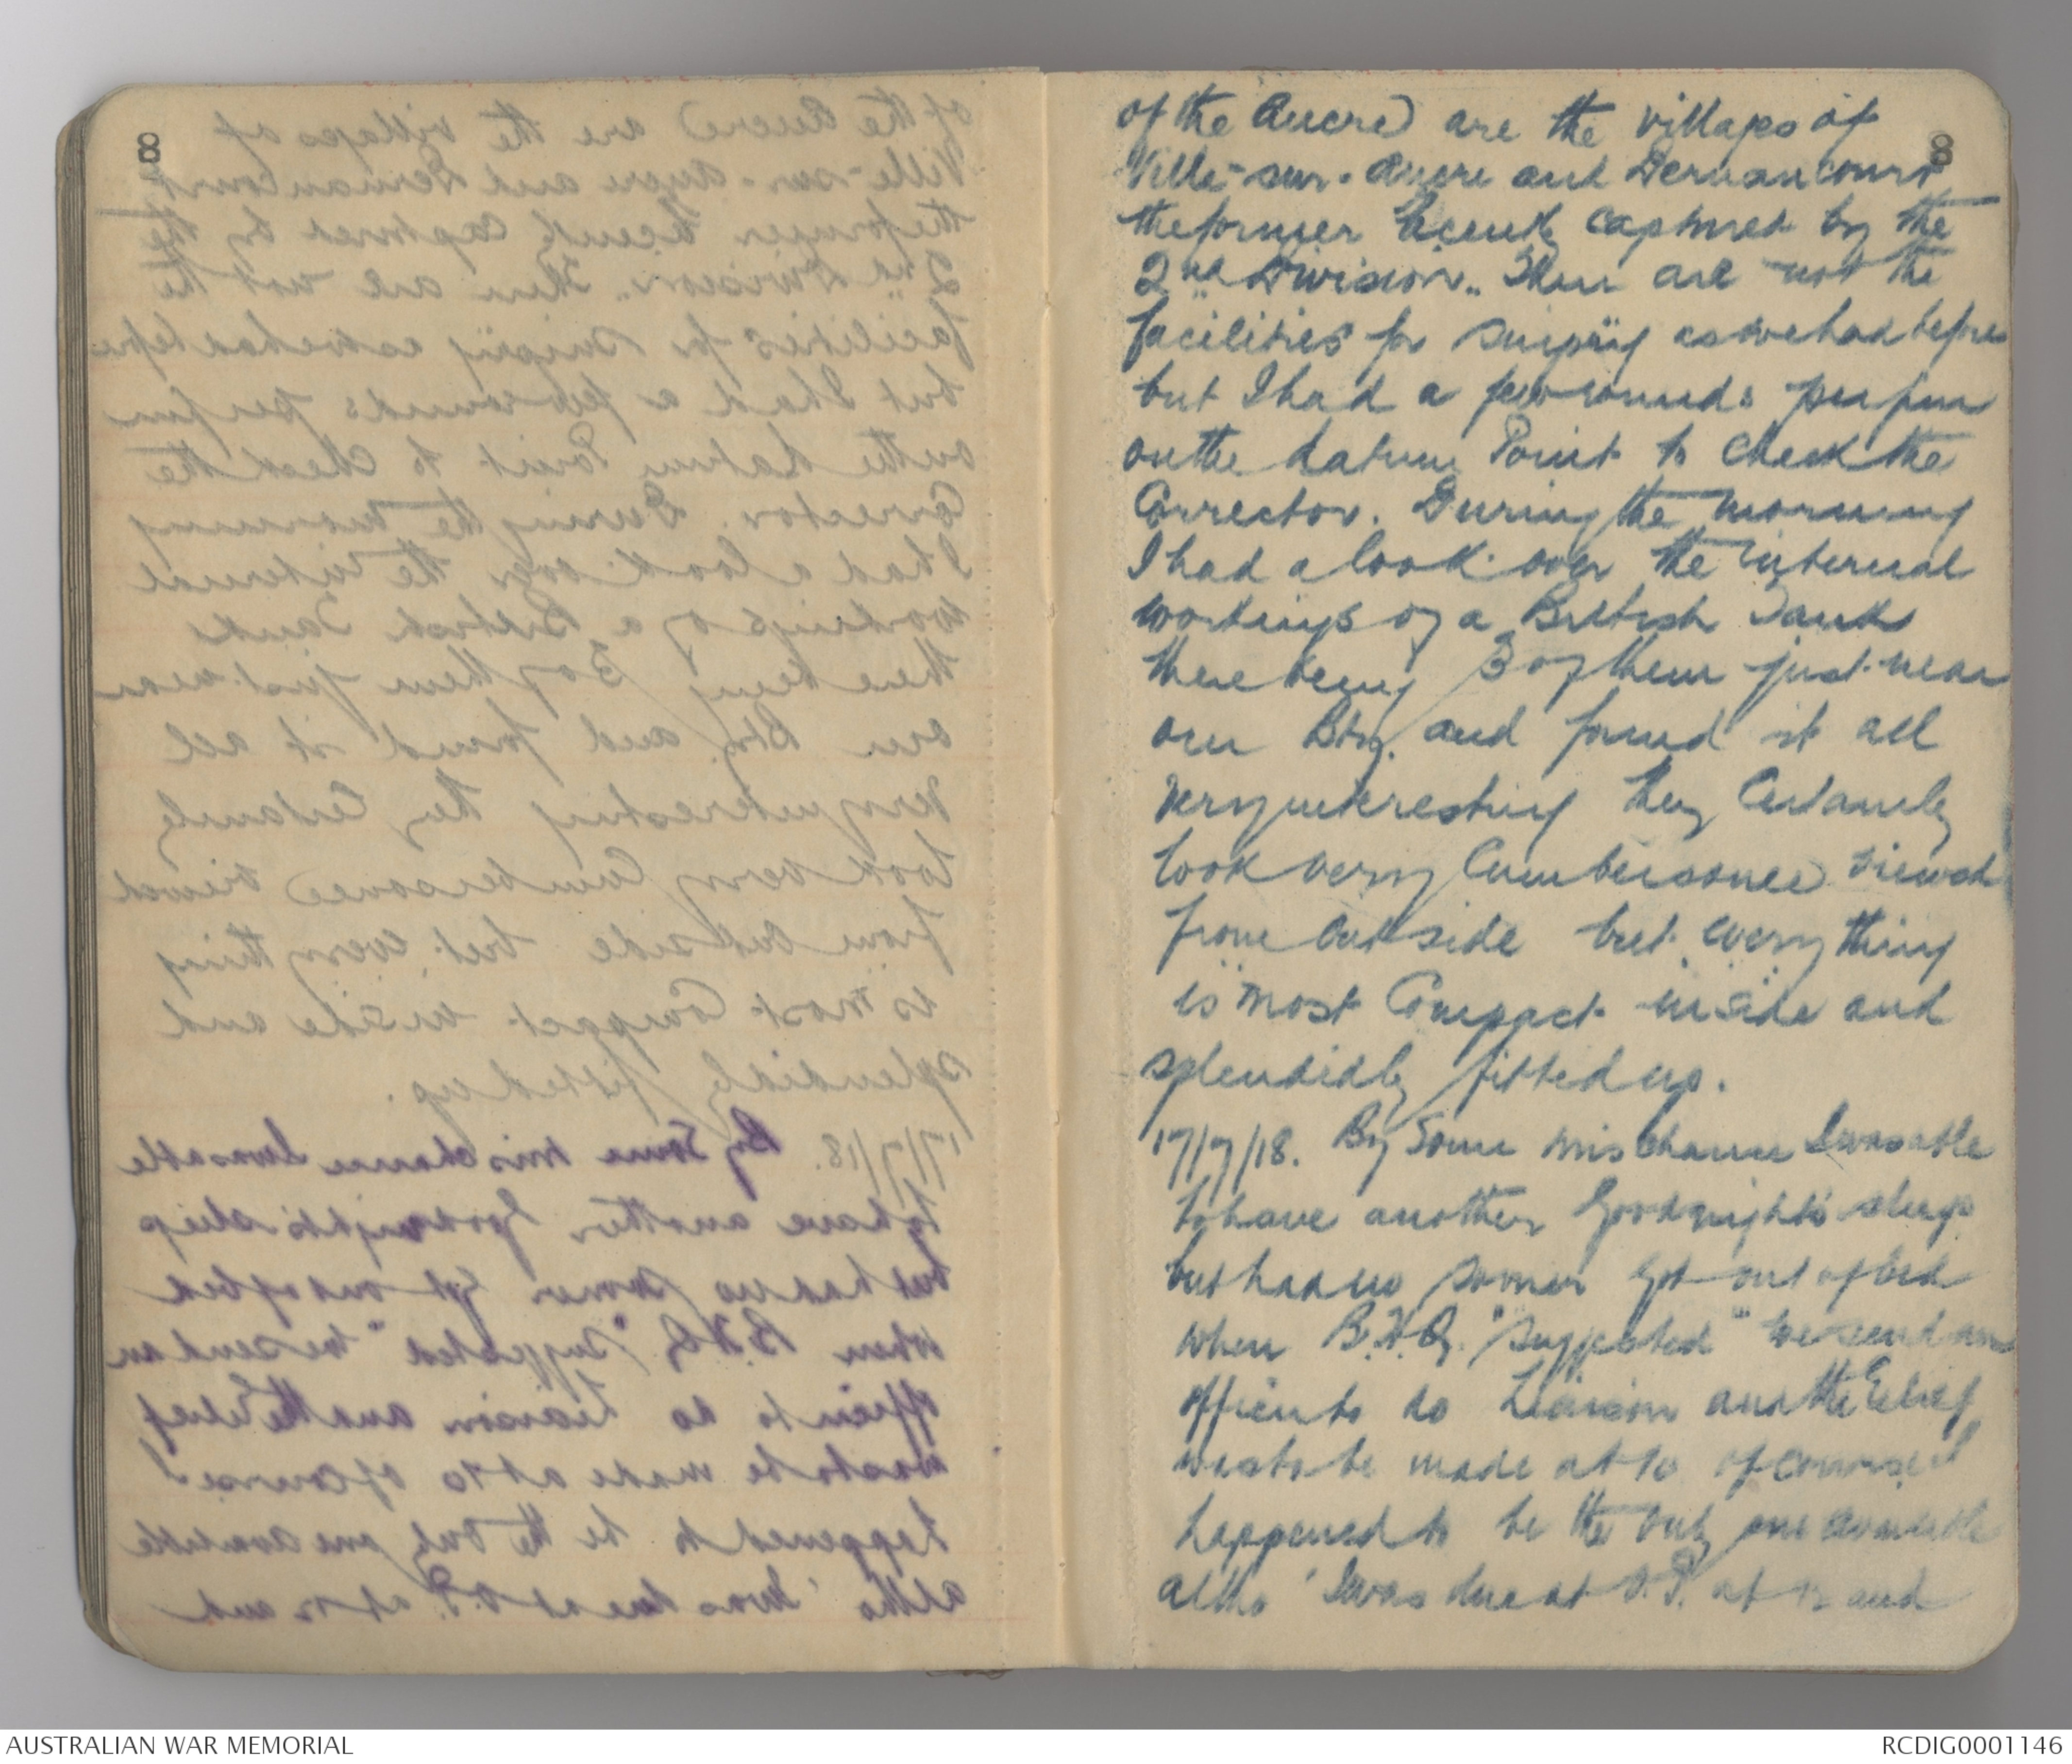 8
of the Ancre) are the villages of
8
Ville-sur-Ancre and Dernancourt
the former recently captured by the
2nd Division. There are not the
facilities for sniping as we had before
but I had a few rounds per gun
on the datum Point to check the
Corrector. During the morning
I had a look over the internal
workings of a British Tank
there being 3 of them just near
our Bty. and found it all
very interesting they Certainly
look very Cumbersome viewed
from outside but everything
is most Compact inside and
splendidly fitted up.
17/7/18. By Some mischance I was able
to have another Good night's sleep
but had no sooner got out of bed
when B.H.Q. "suggested" we send an
officer to do Liaison and the relief
was to be made at 10 of course I
happened to be the only one available
altho' I was due at O.P. at 12 and
AUSTRALIAN WAR MEMORIAL
RCDIG0001146